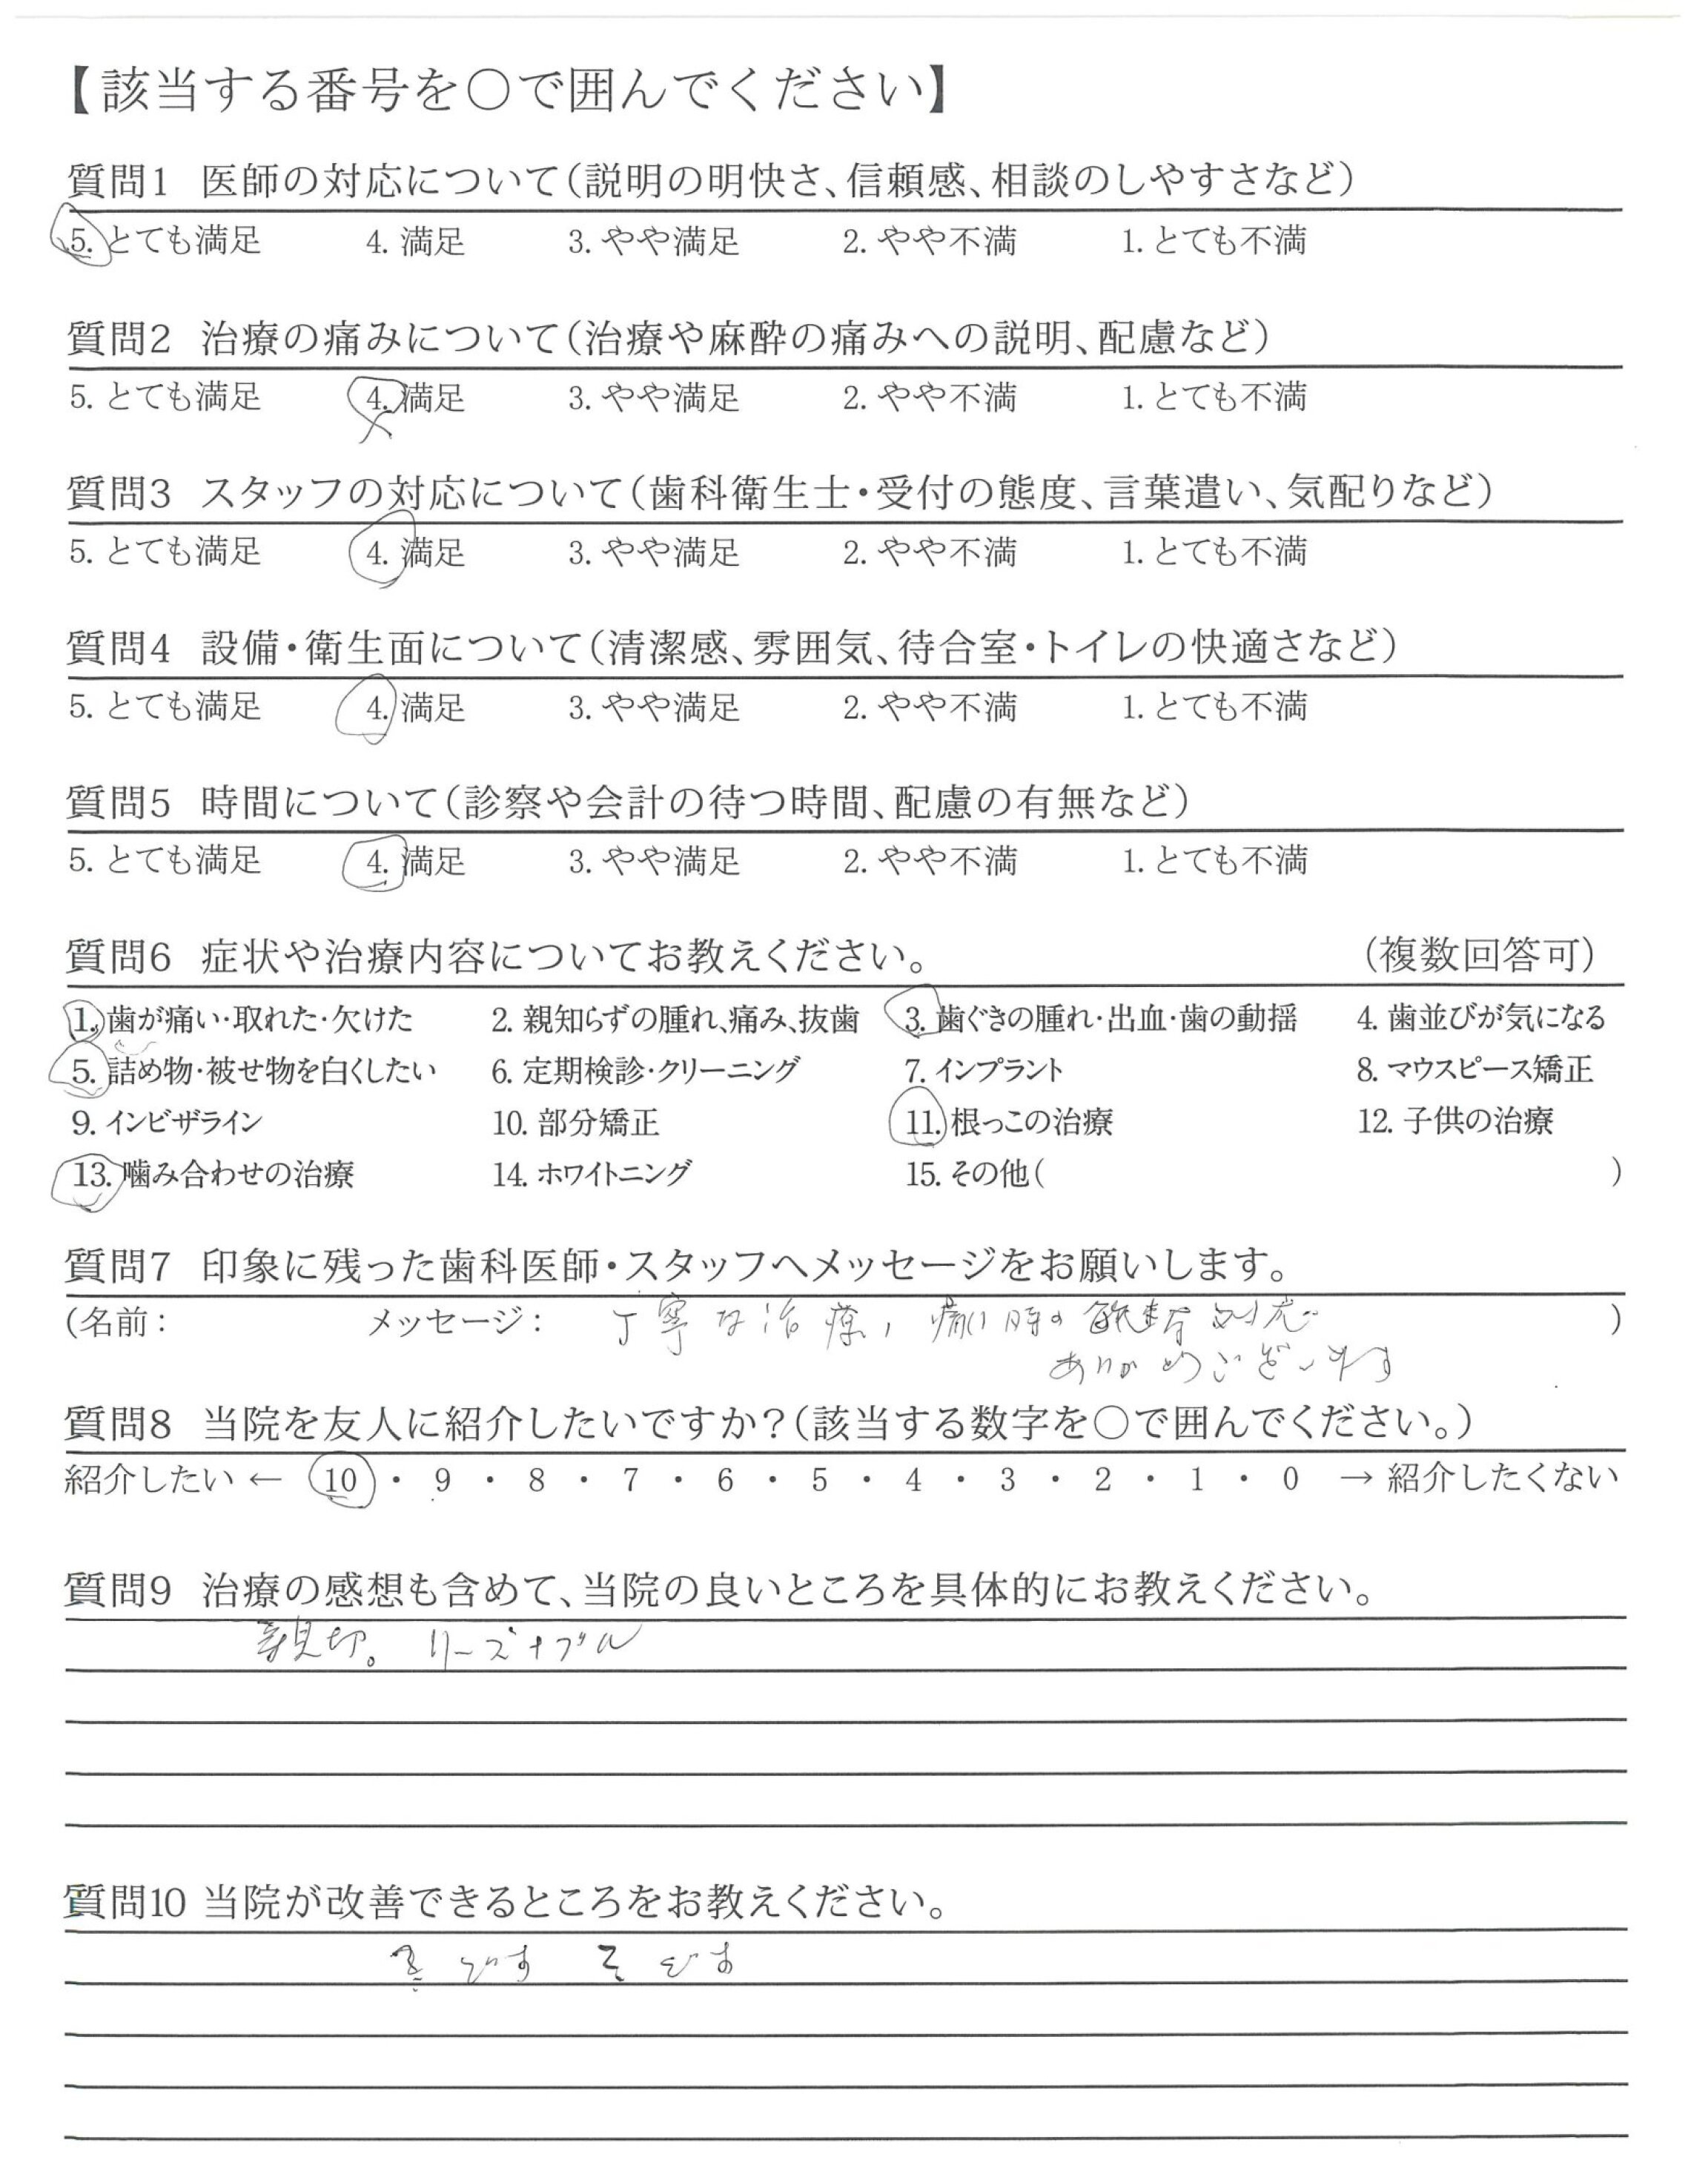 【該当する番号を○で囲んでください】
質問1 医師の対応について(説明の明快さ、信頼感、相談のしやすさなど)
5. とても満足 4. 満足 3. やや満足 2. やや不満 1. とても不満
質問2 治療の痛みについて(治療や麻酔の痛みへの説明、配慮など)
5. とても満足 4. 満足 3. やや満足 2. やや不満 1. とても不満
質問3 スタッフの対応について(歯科衛生士・受付の態度、言葉遣い、気配りなど)
5. とても満足 4. 満足 3. やや満足 2. やや不満 1. とても不満
質問4 設備・衛生面について(清潔感、雰囲気、待合室・トイレの快適さなど)
5. とても満足 4. 満足 3. やや満足 2. やや不満 1. とても不満
質問5 時間について(診察や会計の待つ時間、配慮の有無など)
5. とても満足 4. 満足 3. やや満足 2. やや不満 1. とても不満
質問6 症状や治療内容についてお教えください。 (複数回答可)
1. 歯が痛い・取れた・欠けた 2. 親知らずの腫れ、痛み、抜歯 3. 歯ぐきの腫れ・出血・歯の動揺 4. 歯並びが気になる
5. 詰め物・被せ物を白くしたい 6. 定期検診・クリーニング 7. インプラント 8. マウスピース矯正
9. インビザライン 10. 部分矯正 11. 根っこの治療 12. 子供の治療
13. 噛み合わせの治療 14. ホワイトニング 15. その他( )
質問7 印象に残った歯科医師・スタッフへメッセージをお願いします。
(名前: メッセージ: 丁寧な治療、痛い時の 対応 )
ありがとうございます
質問8 当院を友人に紹介したいですか?(該当する数字を○で囲んでください。)
紹介したい ← 10 ・ 9 ・ 8 ・ 7 ・ 6 ・ 5 ・ 4 ・ 3 ・ 2 ・ 1 ・ 0 → 紹介したくない
質問9 治療の感想も含めて、当院の良いところを具体的にお教えください。
親切。 リーズナブル
質問10 当院が改善できるところをお教えください。